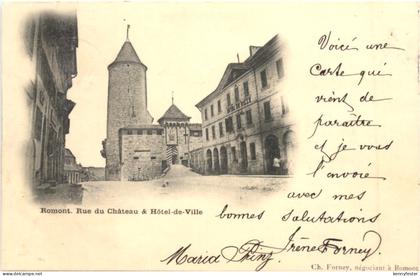 HÔTEL DE VILLE
Voici une
Carte qui
vient de
paraître
et je vous
l'envoie
avec mes
bonnes salutations
Romont. Rue du Château & Hôtel-de-Ville
Maria Irène Forney
Ch. Forney, négociant à Romont
bennyfester